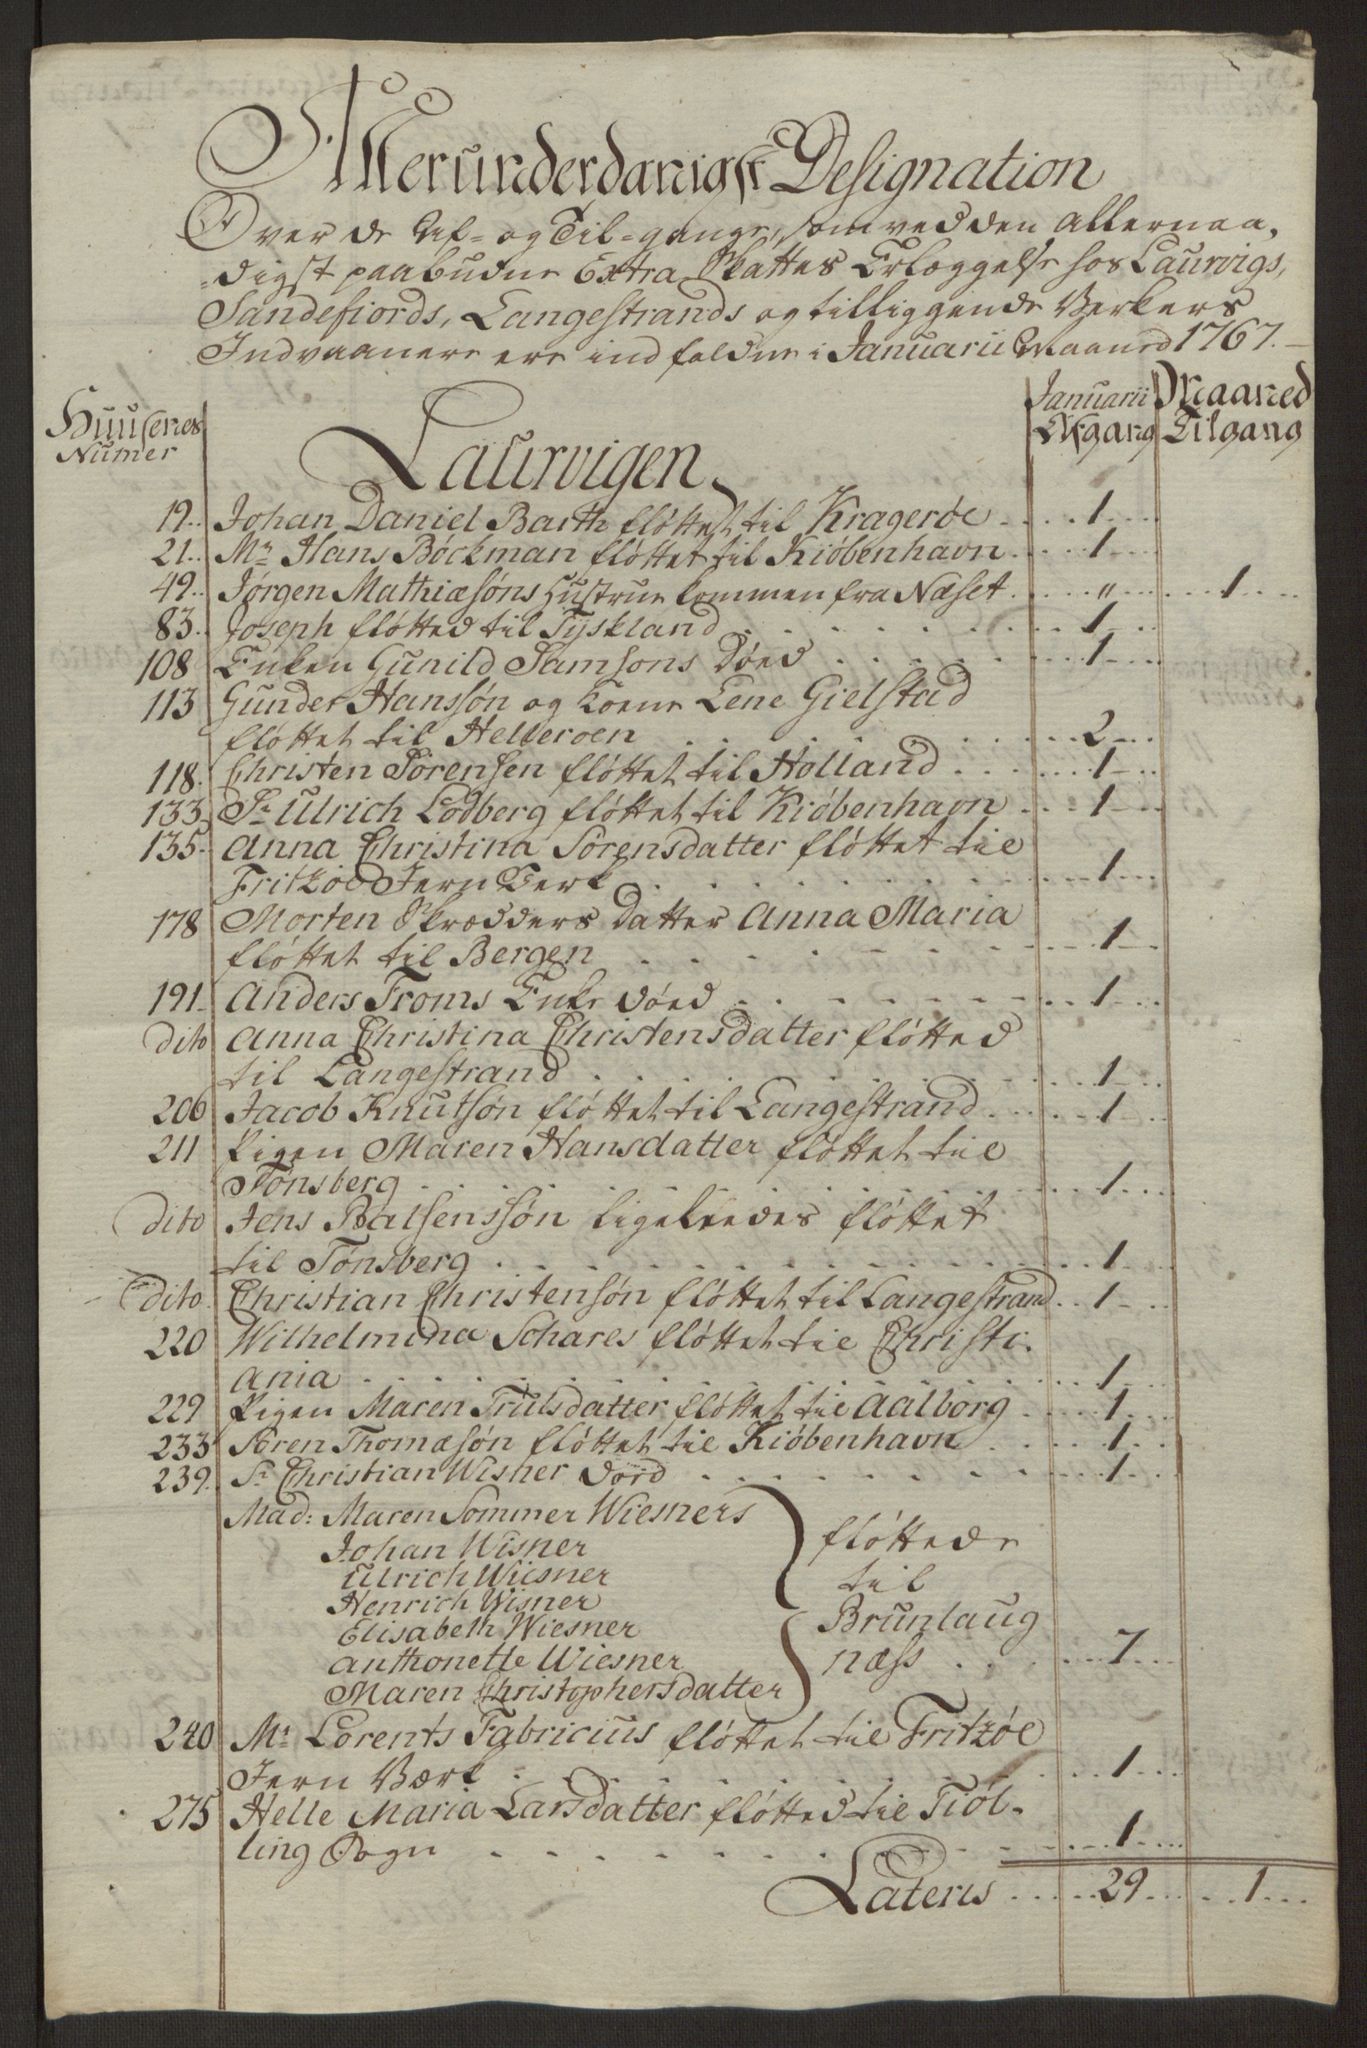 Allerunderdanigst Designation
Over de Af- og Til-gange, som ved den allernaa-
digst paabudne Extra Skattes Erlæggelse hos Laurvigs,
Sandefiords, Langestrands og tilliggende Verkers
Indvaanere ere indfaldne i Januarii Maaned 1767.
Januarii Maaned
Huusenes Numer
Afgang Tilgang
Laurvigen
19 Johan Daniel Barth fløttet til Kragerøe 1
21 Mr Hans Böckman fløttet til Kiöbenhavn 1
49 Jørgen Mathiæsøns Hustrue kommen fra Næset " 1
83 Joseph fløtted til Tÿskland 1
108 Enken Gunild Samsons Död 1
113 Gunder Hanssøn og Kone Lene Gielstad
fløttet til Helleroen 2
118 Christen Sörensen fløttet til Holland 1
133 Sr Ulrich Lodberg fløttet til Kiöbenhavn 1
135 Anna Christina Sörensdatter fløttet til
Fritzöe Jern Verk 1
178 Morten Skrædders Datter Anna Maria
fløttet til Bergen 1
191 Anders Troms Enke död 1
dito Anna Christina Christensdatter fløtted
til Langestrand 1
206 Jacob Knutsøn fløttet til Langestrand 1
211 Pigen Maren Hansdatter fløttet til
Tønsberg 1
dito Jens Balsenssøn ligeledes fløttet
til Tønsberg 1
dito Christian Christensøn fløttet til Langestrand 1
220 Wilhelmina Schares fløttet til Christi-
ania 1
229 Pigen Maren Trulsdatter fløttet til Aalborg 1
233 Søren Thomæsøn fløttet til Kiöbenhavn 1
239 Sr Christian Wisner död 1
Mad: Maren Sommer Wiesners
Johan Wisner fløttede
Ulrich Wiisner til
Henrich Wisner
Elisabeth Wiesner Brunlaug
Anthonette Wiesner næss 7
Maren Christophersdatter
240 Mr Lorents Fabricius fløttet til Fritzöe
Jern Værk 1
275 Helle Maria Larsdatter fløtted til Tiøl-
ling Sogn 1
Lateris 29 1